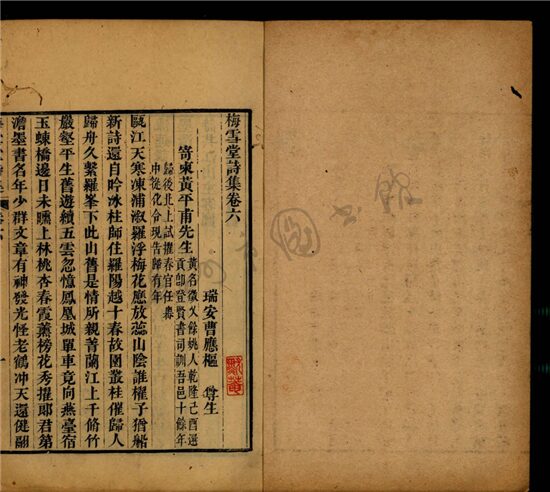 梅雪堂詩集卷六
瑞安曹應樞 尊生
寄柬黃平甫先生
黃名徵乂餘姚人乾隆己酉選
貢即登賢書司訓吾邑十餘年
歸後北上試擢春官任
中從化令現告歸有年
甌江天寒凍浦溆羅浮梅花應放蕊山陰誰櫂子猶船
新詩還自吟冰柱師住羅陽越十春故園叢桂催歸人
歸舟久繫羅峯下此山舊是情所親蒼蘭江上千條竹
嚴壑平生舊遊續五雲忽憶鳳凰城單車竟向燕臺宿
玉蝀橋邊日未曛上林桃杏春霞薰榜花秀擢郎君第
澹墨書名年少羣文章有神發光怪老鶴沖天還健翮